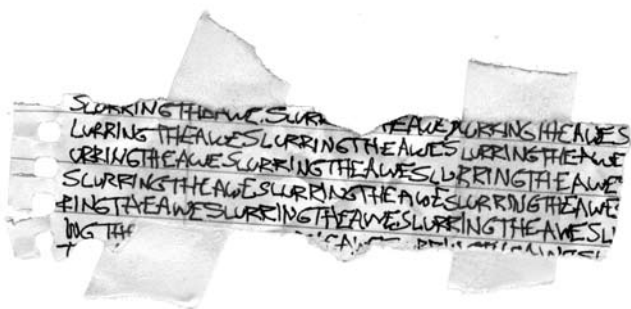 SLURRINGTHEAWESLURR THEAWESLURRINGTHEAWES
LURRINGTHEAWESLURRINGTHEAWESLURRINGTHEAWE
URRINGTHEAWESLURRINGTHEAWESLURRINGTHEAWE
SLURRINGTHEAWESLURRINGTHEAWESLURRINGTHEAWE
RINGTHEAWESLURRINGTHEAWESLURRINGTHEAWESLU
NGTH